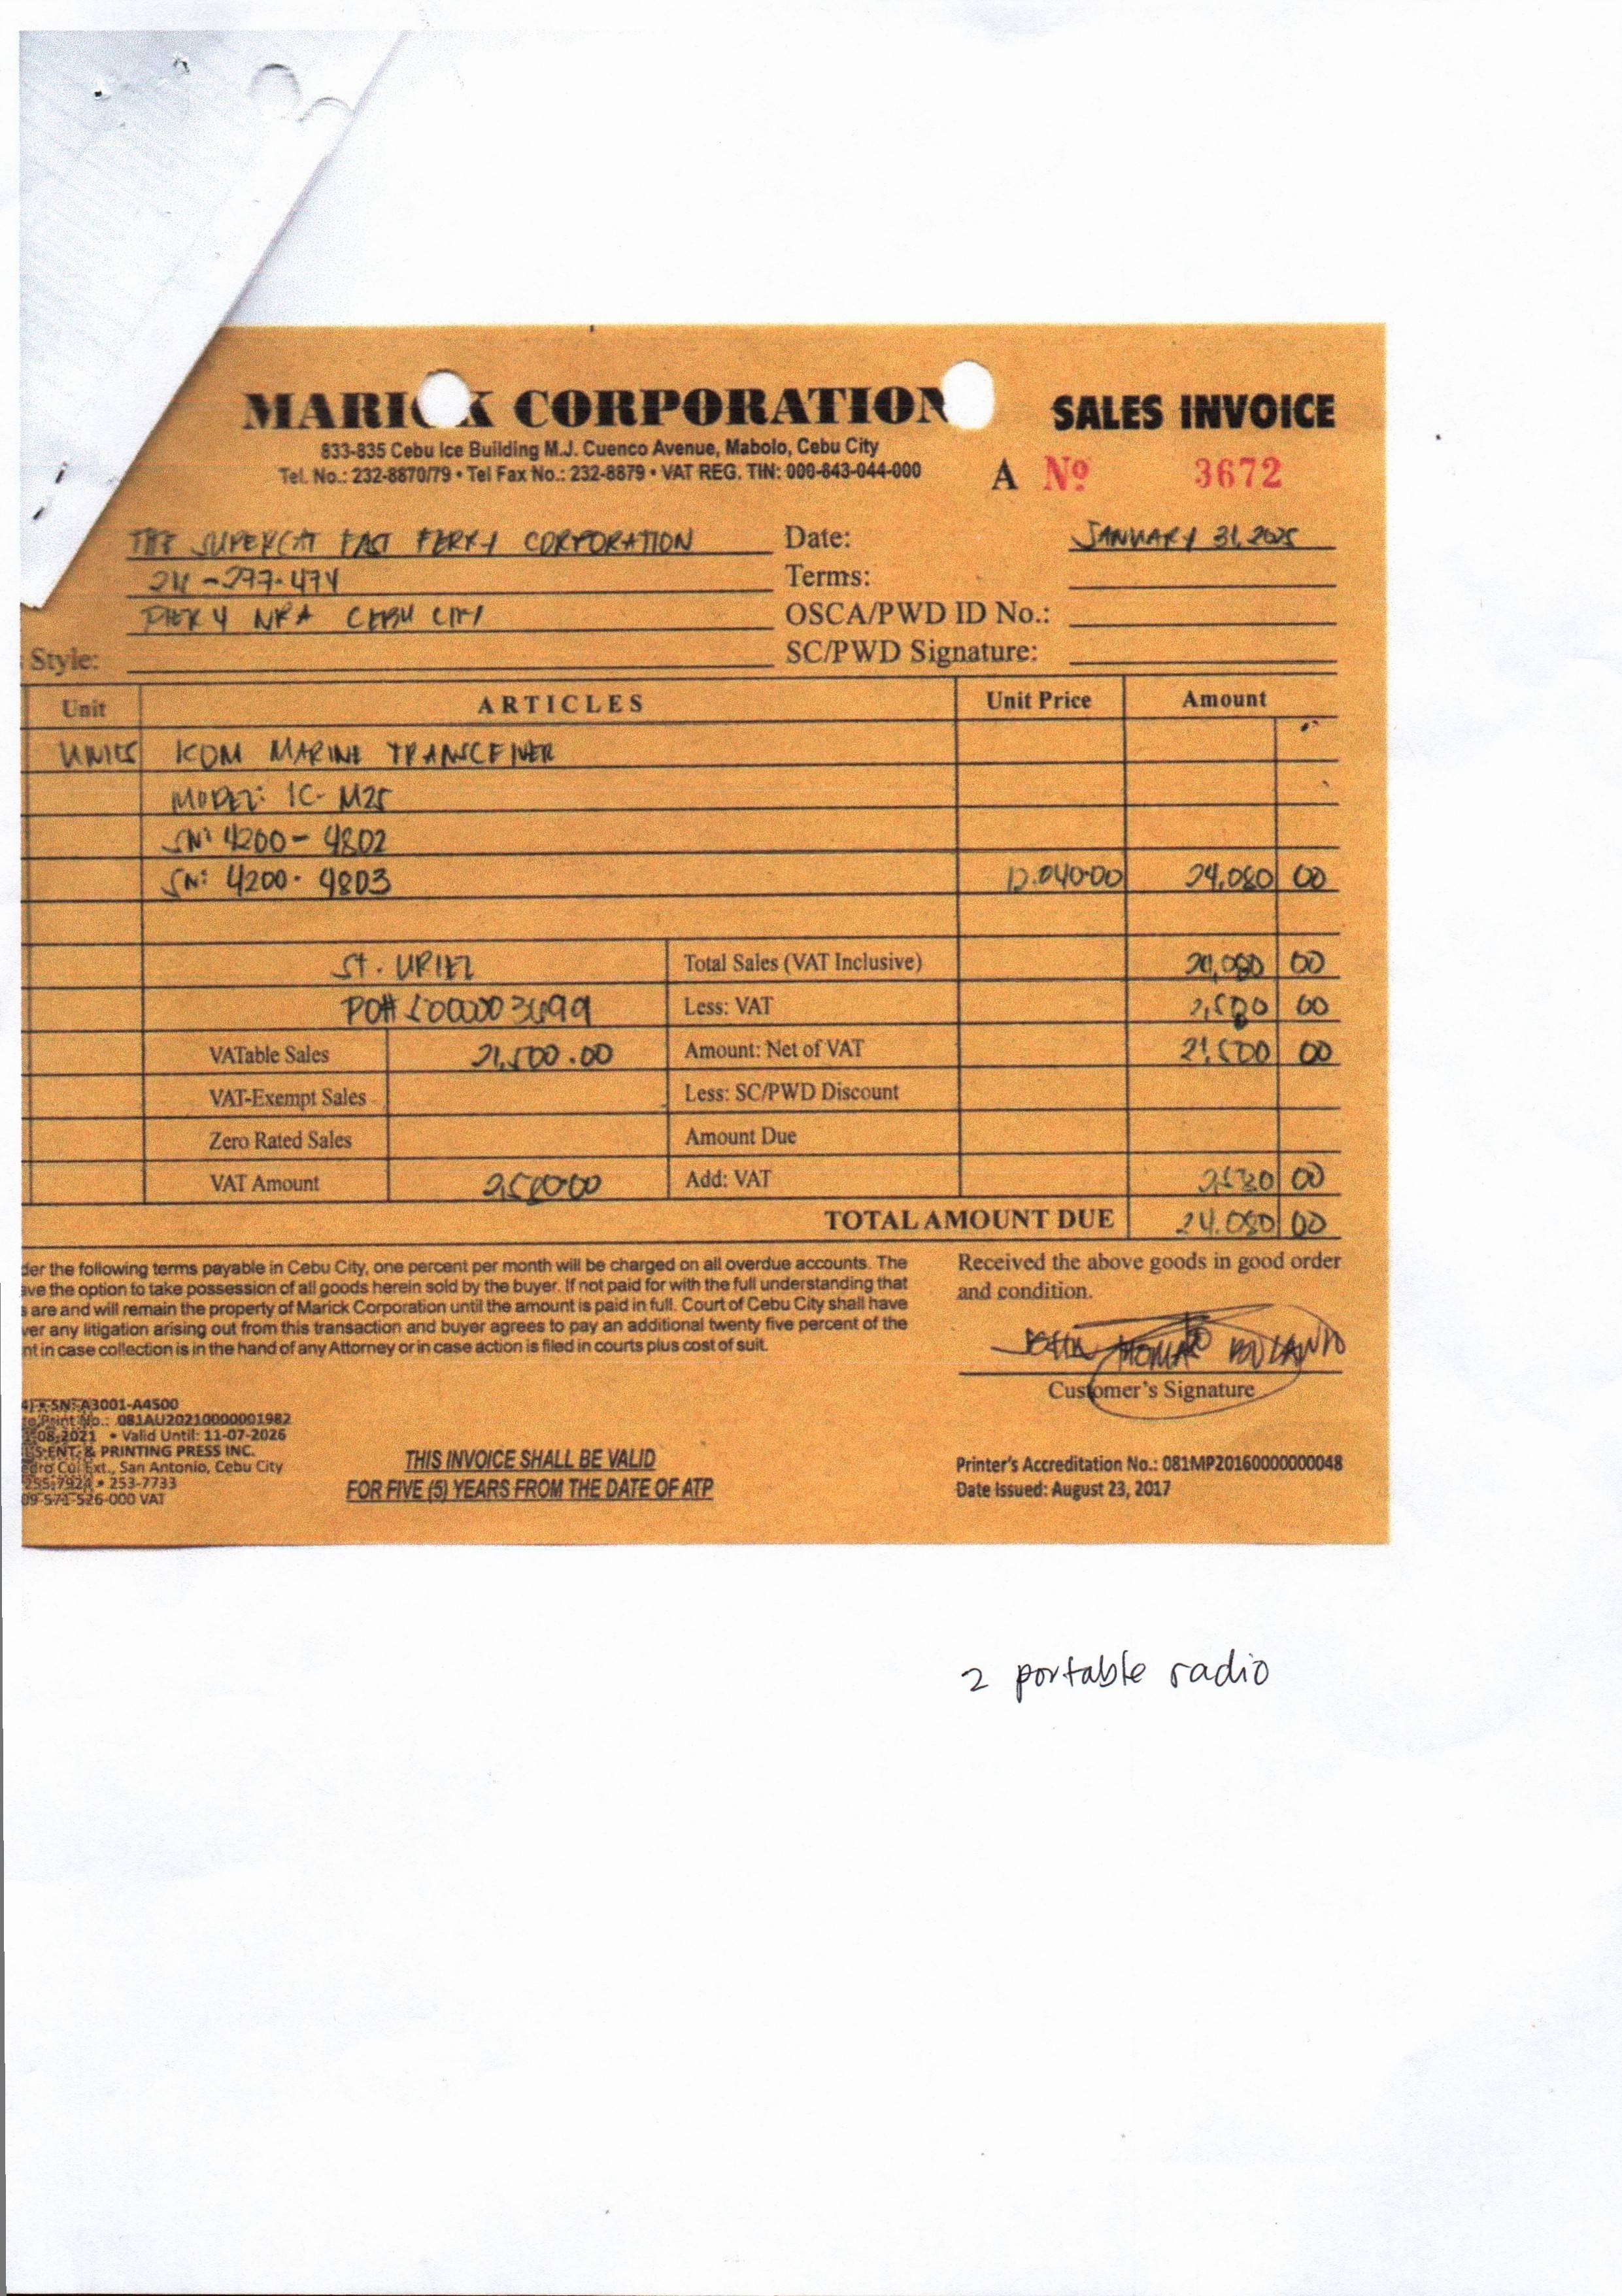 MARICK CORPORATION
SALES INVOICE
833-835 Cebu Ice Building M.J. Cuenco Avenue, Mabolo, Cebu City
Tel. No.: 232-8870/79 • Tel Fax No.: 232-8879 • VAT REG. TIN: 000-843-044-000
A Nº 3672
THE SUPERCAT FAST FERRY CORPORATION
Date: JANUARY 31, 2025
211-277-474
Terms:
PIER 4 NRA CEBU CITY
OSCA/PWD ID No.:
Style:
SC/PWD Signature:
Unit ARTICLES Unit Price Amount
UNITS ICOM MARINE TRANSCEIVER
MODEL: IC-M25
SN: 4200-4802
SN: 4200-4803 12,040.00 24,080 00
ST. URIEL Total Sales (VAT Inclusive) 24,080 00
PO# Less: VAT 2,580 00
VATable Sales 21,500.00 Amount: Net of VAT 21,500 00
VAT-Exempt Sales Less: SC/PWD Discount
Zero Rated Sales Amount Due
VAT Amount 2,580.00 Add: VAT 2,580 00
TOTAL AMOUNT DUE 24,080 00
der the following terms payable in Cebu City, one percent per month will be charged on all overdue accounts. The
ave the option to take possession of all goods herein sold by the buyer. If not paid for with the full understanding that
s are and will remain the property of Marick Corporation until the amount is paid in full. Court of Cebu City shall have
ver any litigation arising out from this transaction and buyer agrees to pay an additional twenty five percent of the
nt in case collection is in the hand of any Attorney or in case action is filed in courts plus cost of suit.
Received the above goods in good order
and condition.
Customer's Signature
SN: A3001-A4500
Print No.: 081AU20210000001982
08-2021 • Valid Until: 11-07-2026
ENT. & PRINTING PRESS INC.
Ext., San Antonio, Cebu City
255-7924 • 253-7733
09-571-526-000 VAT
THIS INVOICE SHALL BE VALID
FOR FIVE (5) YEARS FROM THE DATE OF ATP
Printer's Accreditation No.: 081MP20160000000048
Date Issued: August 23, 2017
2 portable radio